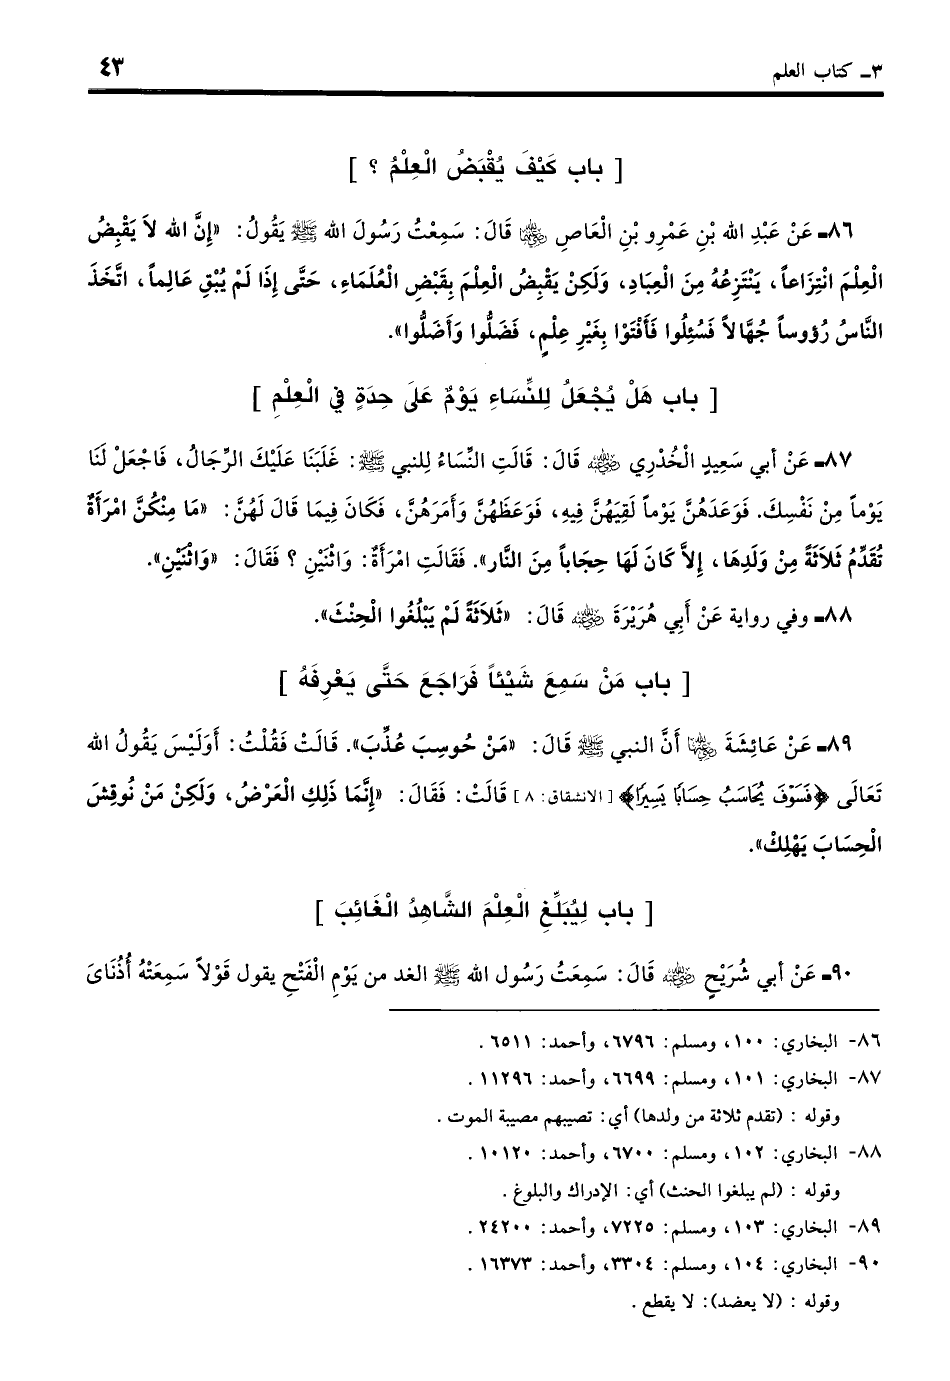 ٣ـ كتاب العلم ٤٣
[ باب كَيْفَ يُقْبَضُ الْعِلْمُ ؟ ]
٨٦ـ عَنْ عَبْدِ الله بْنِ عَمْرِو بْنِ الْعَاصِ رضي الله عنهما قَالَ: سَمِعْتُ رَسُولَ الله ﷺ يَقُولُ: «إِنَّ الله لاَ يَقْبِضُ
الْعِلْمَ انْتِزَاعاً، يَنْتَزِعُهُ مِنَ الْعِبَادِ، وَلَكِنْ يَقْبِضُ الْعِلْمَ بِقَبْضِ الْعُلَمَاءِ، حَتَّى إِذَا لَمْ يُبْقِ عَالِماً، اتَّخَذَ
النَّاسُ رُؤوساً جُهَّالاً فَسُئِلُوا فَأَفْتَوْا بِغَيْرِ عِلْمٍ، فَضَلُّوا وَأَضَلُّوا».
[ باب هَلْ يُجْعَلُ لِلنِّسَاءِ يَوْمٌ عَلَى حِدَةٍ في الْعِلْمِ ]
٨٧ـ عَنْ أبي سَعِيدٍ الْخُدْرِي رضي الله عنه قَالَ: قَالَتِ النِّسَاءُ لِلنبي ﷺ: غَلَبَنَا عَلَيْكَ الرِّجَالُ، فَاجْعَلْ لَنَا
يَوْماً مِنْ نَفْسِكَ. فَوَعَدَهُنَّ يَوْماً لَقِيَهُنَّ فِيهِ، فَوَعَظَهُنَّ وَأَمَرَهُنَّ، فَكَانَ فِيمَا قَالَ لَهُنَّ: «مَا مِنْكُنَّ امْرَأَةٌ
تُقَدِّمُ ثَلاَثَةً مِنْ وَلَدِهَا، إِلاَّ كَانَ لَهَا حِجَاباً مِنَ النَّارِ». فَقَالَتِ امْرَأَةٌ: وَاثْنَيْنِ ؟ فَقَالَ: «وَاثْنَيْنِ».
٨٨ـ وفي رواية عَنْ أَبِي هُرَيْرَةَ رضي الله عنه قَالَ: «ثَلاَثَةً لَمْ يَبْلُغُوا الْحِنْثَ».
[ باب مَنْ سَمِعَ شَيْئاً فَرَاجَعَ حَتَّى يَعْرِفَهُ ]
٨٩ـ عَنْ عَائِشَةَ رضي الله عنها أَنَّ النبي ﷺ قَالَ: «مَنْ حُوسِبَ عُذِّبَ». قَالَتْ فَقُلْتُ: أَوَلَيْسَ يَقُولُ الله
تَعَالَى ﴿فَسَوْفَ يُحَاسَبُ حِسَابًا يَسِيرًا﴾ [الانشقاق: ٨] قَالَتْ: فَقَالَ: «إِنَّمَا ذَلِكِ الْعَرْضُ، وَلَكِنْ مَنْ نُوقِشَ
الْحِسَابَ يَهْلِكْ».
[ باب لِيُبَلِّغِ الْعِلْمَ الشَّاهِدُ الْغَائِبَ ]
٩٠ـ عَنْ أبي شُرَيْحٍ رضي الله عنه قَالَ: سَمِعَتُ رَسُول الله ﷺ الغد من يَوْمِ الْفَتْحِ يقول قَوْلاً سَمِعَتْهُ أُذُنَايَ
٨٦- البخاري: ١٠٠، ومسلم: ٦٧٩٦، وأحمد: ٦٥١١.
٨٧- البخاري: ١٠١، ومسلم: ٦٦٩٩، وأحمد: ١١٢٩٦.
وقوله : (تقدم ثلاثة من ولدها) أي: تصيبهم مصيبة الموت .
٨٨- البخاري: ١٠٢، ومسلم: ٦٧٠٠، وأحمد: ١٠١٢٠.
وقوله : (لم يبلغوا الحنث) أي: الإدراك والبلوغ .
٨٩- البخاري: ١٠٣، ومسلم: ٧٢٢٥، وأحمد: ٢٤٢٠٠.
٩٠- البخاري: ١٠٤، ومسلم: ٣٣٠٤، وأحمد: ١٦٣٧٣.
وقوله : (لا يعضد): لا يقطع .